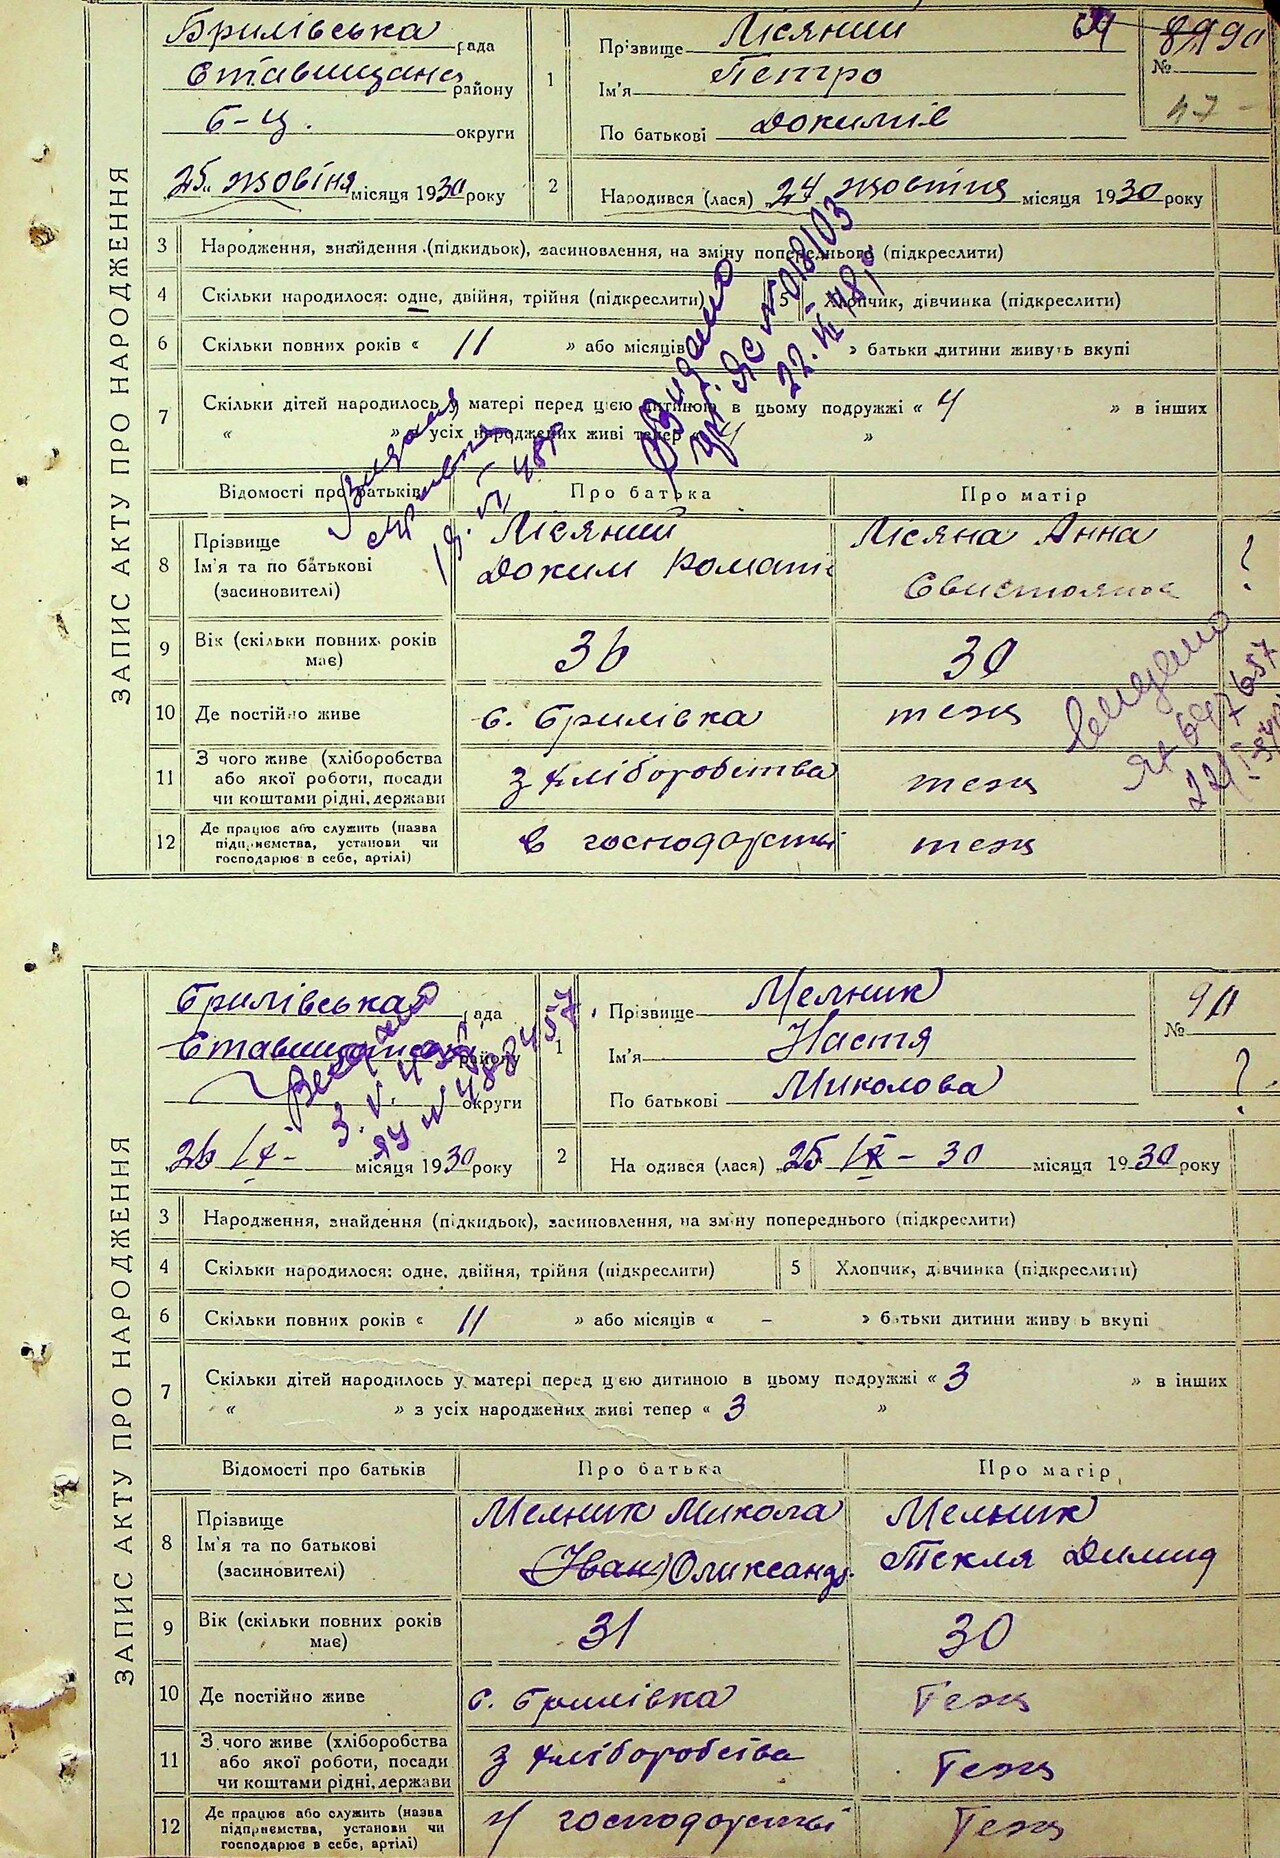 ЗАПИС АКТУ ПРО НАРОДЖЕННЯ
Брилівська рада
Ставищанс району
Б-Ц. округи
25 жовтня місяця 1930 року
1 Прізвище Лісяний
Ім'я Петро
По батькові Докимів
№ 90
47 -
2 Народився (лася) 24 жовтня місяця 1930 року
3 Народження, знайдення (підкидьок), засиновлення, на зміну попереднього (підкреслити)
4 Скільки народилося: одне, двійня, трійня (підкреслити)
5 Хлопчик, дівчинка (підкреслити)
6 Скільки повних років « 11 » або місяців » батьки дитини живуть вкупі
7 Скільки дітей народилось у матері перед цією дитиною в цьому подружжі « 4 » в інших
« » з усіх народжених живі тепер « 4 »
Видано
ЯС № 018103
22. VII 78
Видана
19. VI 48р
Відомості про батьків Про батька Про матір
8 Прізвище
Ім'я та по батькові
(засиновителі)
Лісяний
Доким Романів
Лісяна Анна
?
9 Вік (скільки повних років має) 36 30
10 Де постійно живе с. Брилівка теж
11 З чого живе (хліборобства або якої роботи, посади чи коштами рідні, держави з хліборобства теж
12 Де працює або служить (назва підприємства, установи чи господарює в себе, артілі) в господарстві теж
697657
ЗАПИС АКТУ ПРО НАРОДЖЕННЯ
Брилівська рада
Ставищанськ району
округи
26 IX- місяця 1930 року
1 Прізвище Мелник
Ім'я Настя
По батькові Миколова
№ 90
?
2 Народився (лася) 25 IX - 30 місяця 1930 року
3. V. 43
ЯУ № 488457
3 Народження, знайдення (підкидьок), засиновлення, на зміну попереднього (підкреслити)
4 Скільки народилося: одне, двійня, трійня (підкреслити)
5 Хлопчик, дівчинка (підкреслити)
6 Скільки повних років « 11 » або місяців « - » батьки дитини живуть вкупі
7 Скільки дітей народилось у матері перед цією дитиною в цьому подружжі « 3 » в інших
« » з усіх народжених живі тепер « 3 »
Відомості про батьків Про батька Про матір
8 Прізвище
Ім'я та по батькові
(засиновителі)
Мелник Микола
(Іван) Олександр.
Мелник
Текля Демид
9 Вік (скільки повних років має) 31 30
10 Де постійно живе с. Брилівка Теж
11 З чого живе (хліборобства або якої роботи, посади чи коштами рідні, держави з хліборобства Теж
12 Де працює або служить (назва підприємства, установи чи господарює в себе, артілі) у господарстві Теж